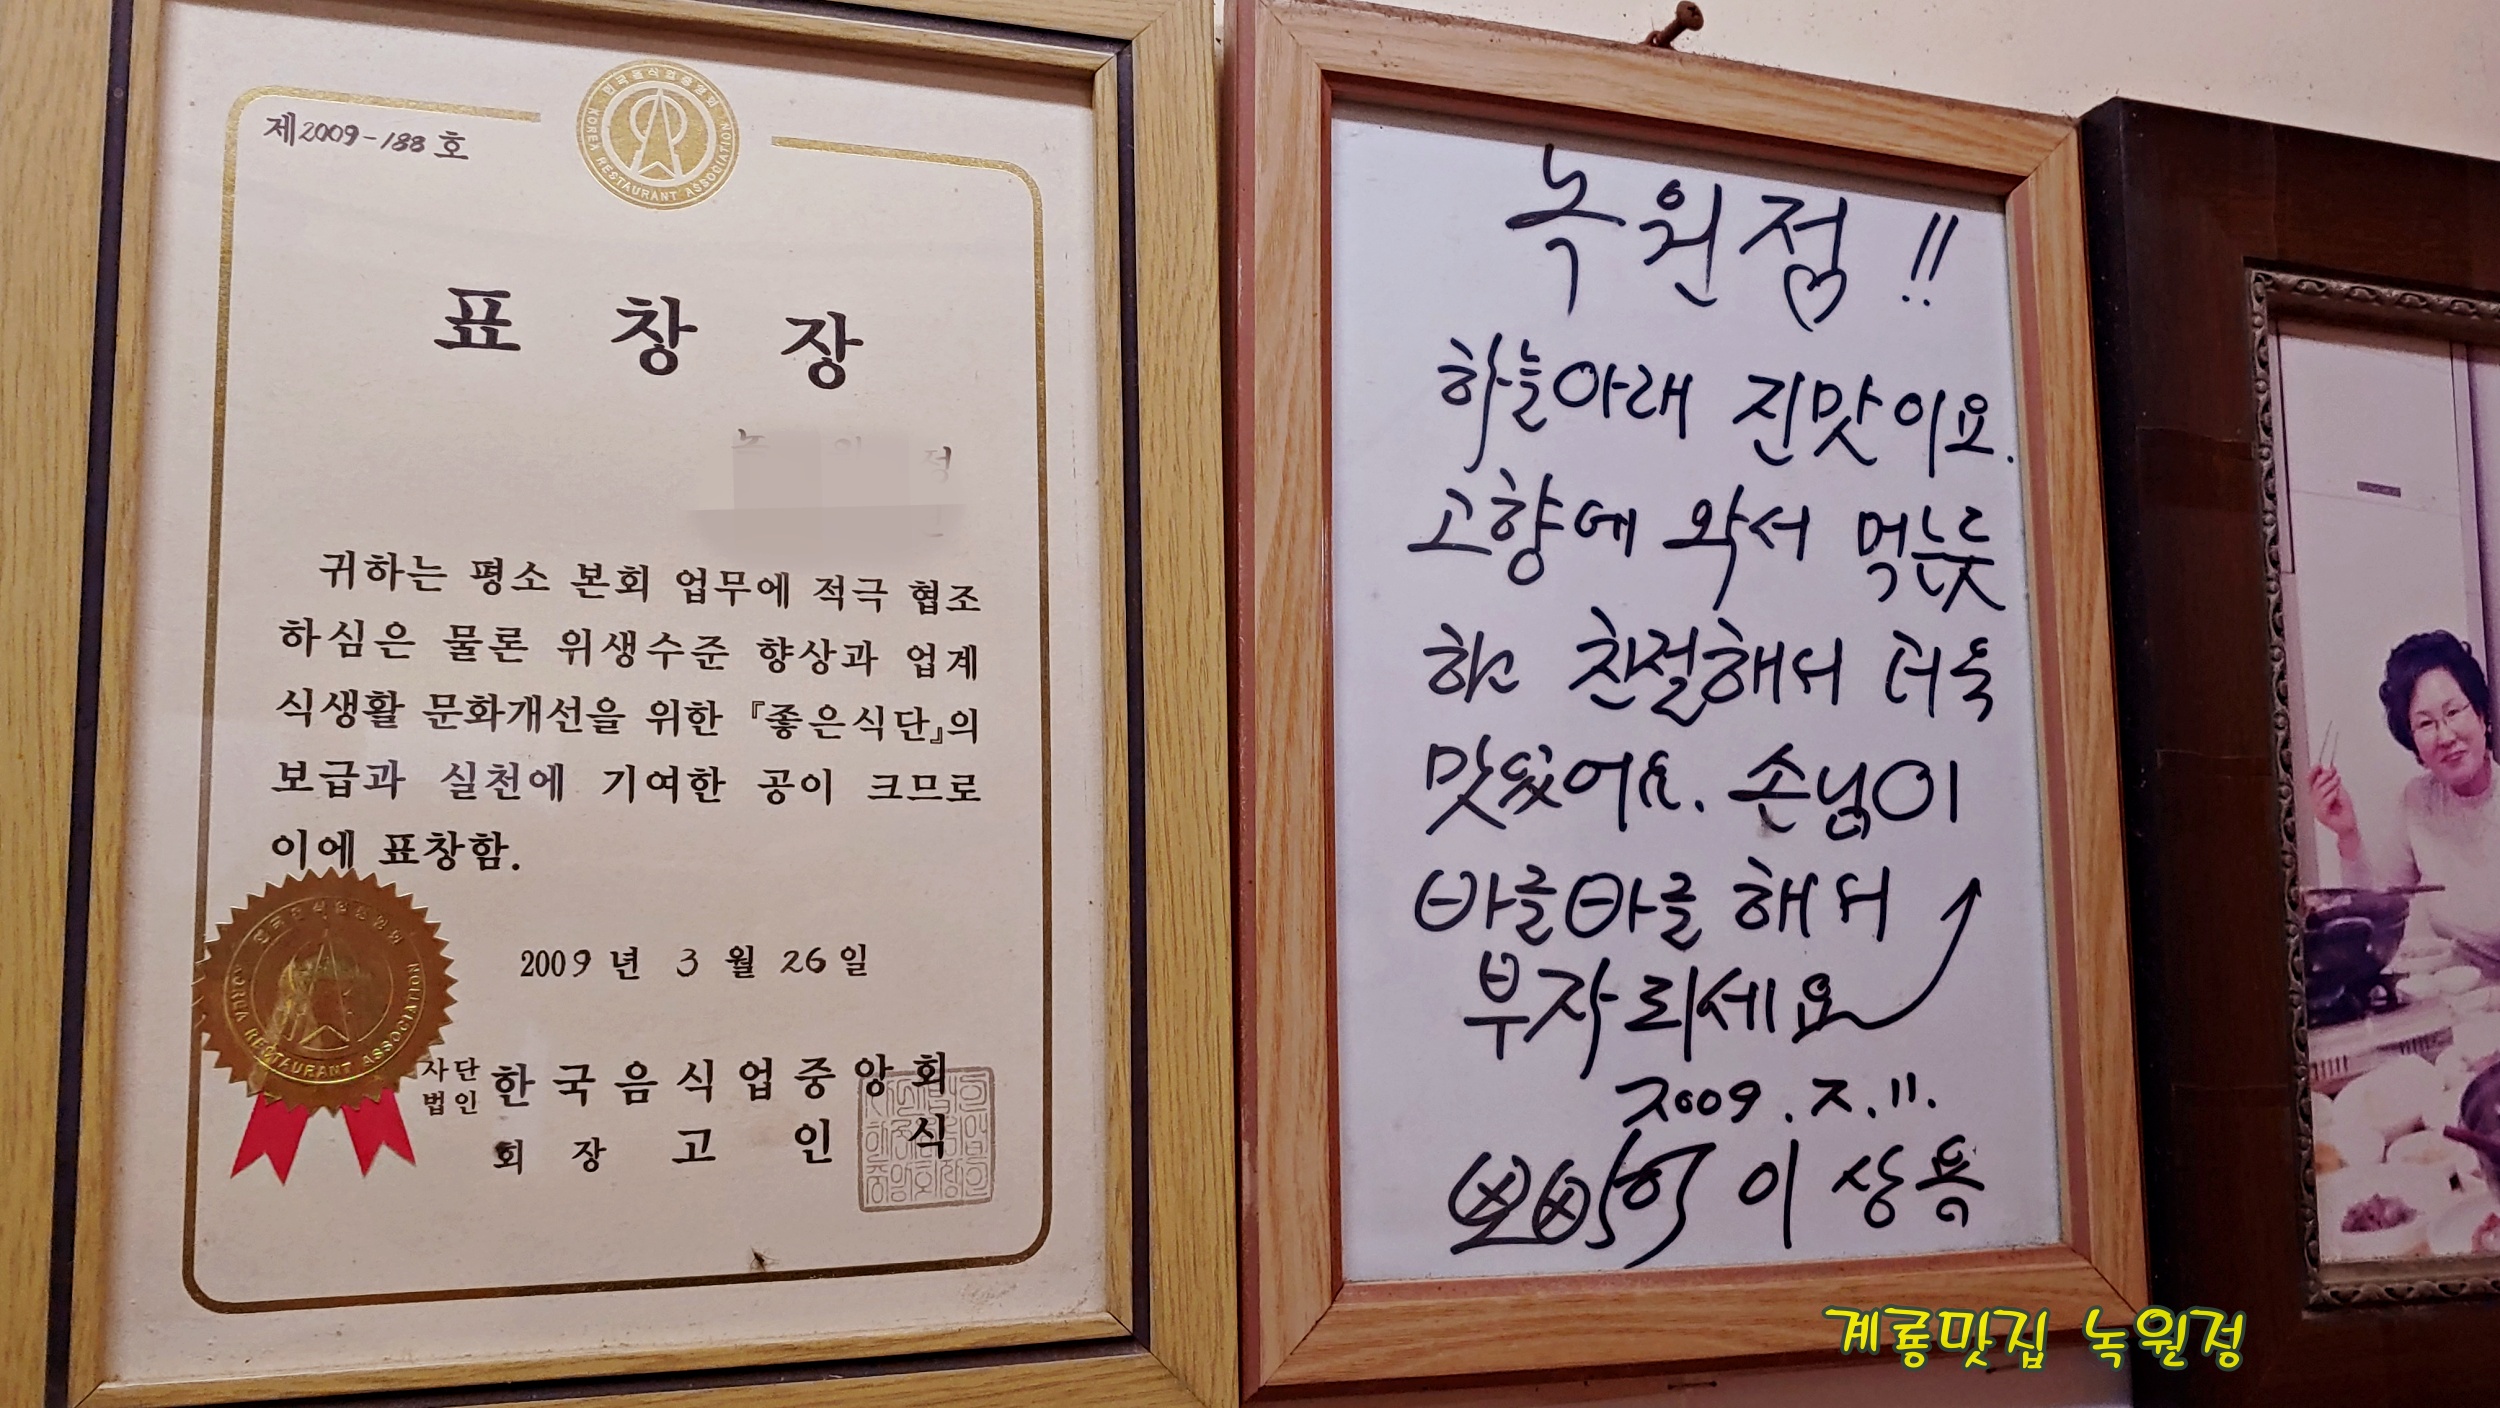 제2009-188호
한국음식업중앙회
KOREA RESTAURANT ASSOCIATION
표 창 장
귀하는 평소 본회 업무에 적극 협조
하심은 물론 위생수준 향상과 업계
식생활 문화개선을 위한 『좋은식단』의
보급과 실천에 기여한 공이 크므로
이에 표창함.
한국음식업중앙회
KOREA RESTAURANT ASSOCIATION
2009년 3월 26일
사단법인 한국음식업중앙회
회 장 고 인 식
녹원정!!
하늘아래 진맛이요.
고향에 와서 먹는듯
하고 친절해서 더욱
맛있어요. 손님이
바글바글해서
부자되세요
2009. 2. 11.
뽀빠이 이상용
계룡맛집 녹원정